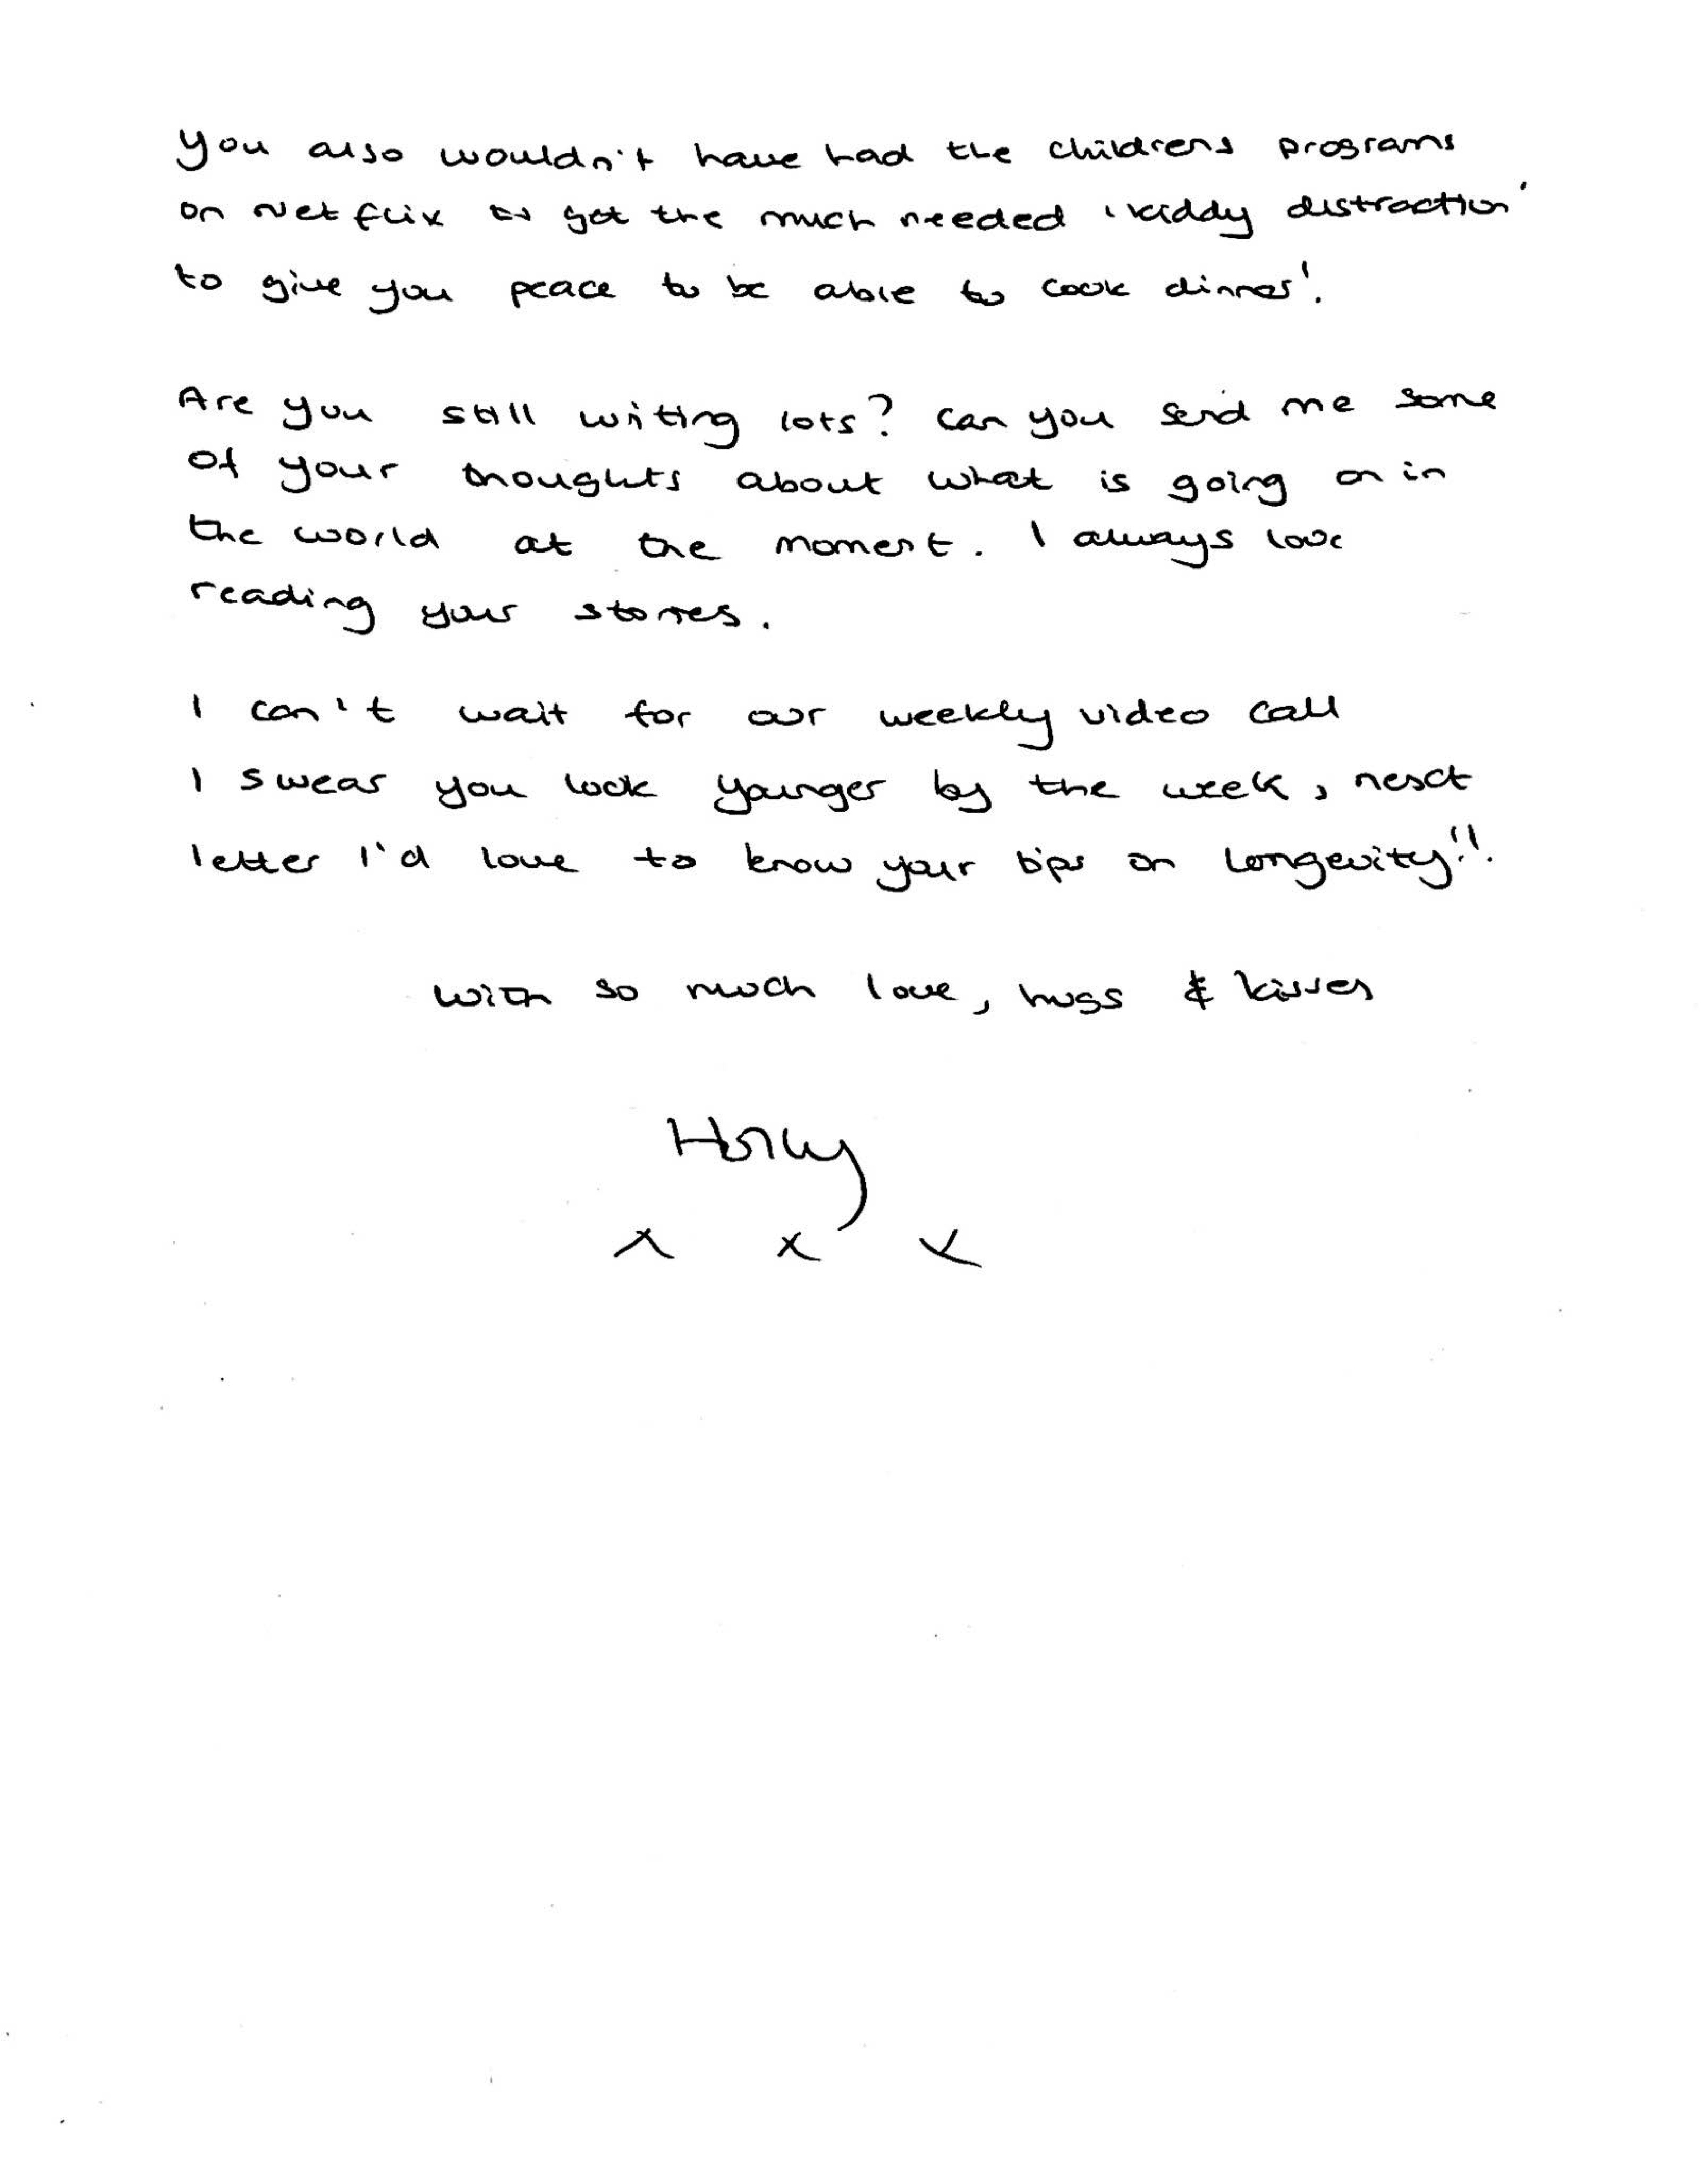 You also wouldn't have had the childrens programs
on Netflix to get the much needed 'kiddy distraction'
to give you peace to be able to cook dinner!.
Are you still writing lots? Can you send me some
of your thoughts about what is going on in
the world at the moment. I always love
reading your stories.
I can't wait for our weekly video call
I swear you look younger by the week, next
letter I'd love to know your tips on longevity!!.
With so much love, hugs & kisses
Holly
x x x